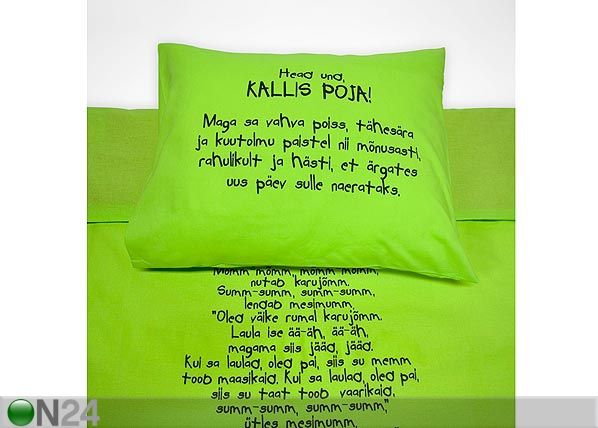 Head und,
KALLIS POJA!
Maga sa vahva poiss, tähesära
ja kuutolmu paistel nii mõnusasti,
rahulikult ja hästi, et ärgates
uus päev sulle naerataks.
Mõmm mõmm, mõmm-mõmm,
nutab karujõmm.
Summ-summ, summ-summ,
lendab mesimumm.
"Oled väike rumal karujõmm.
Laula ise ää-äh, ää-äh,
magama siis jääd, jääd.
Kui sa laulad, oled pai, siis su memm
toob maasikaid. Kui sa laulad, oled pai,
siis su taat toob vaarikaid,
summ-summ, summ-summ,"
ütles mesimumm.
ON24